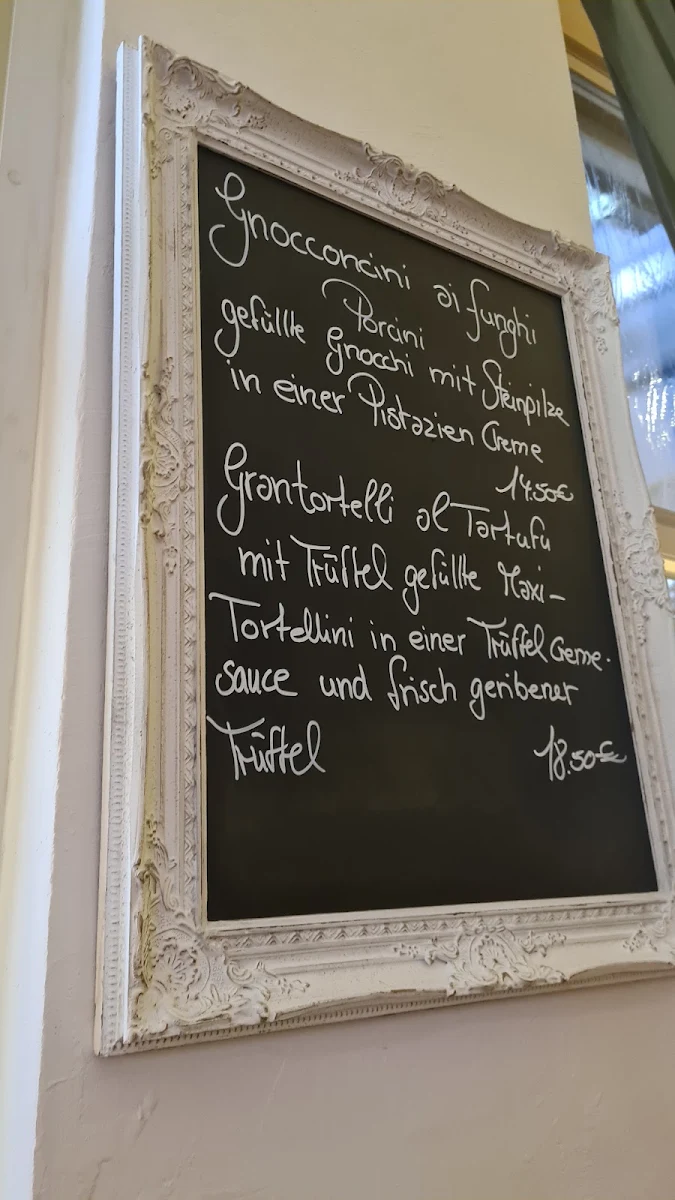 Gnocconcini ai funghi
Porcini
gefüllte Gnocchi mit Steinpilze
in einer Pistazien Creme
14.50€
Grantortelli al Tartufu
mit Trüffel gefüllte Maxi-
Tortellini in einer Trüffel Creme-
sauce und frisch geribener
Trüffel 18.50€